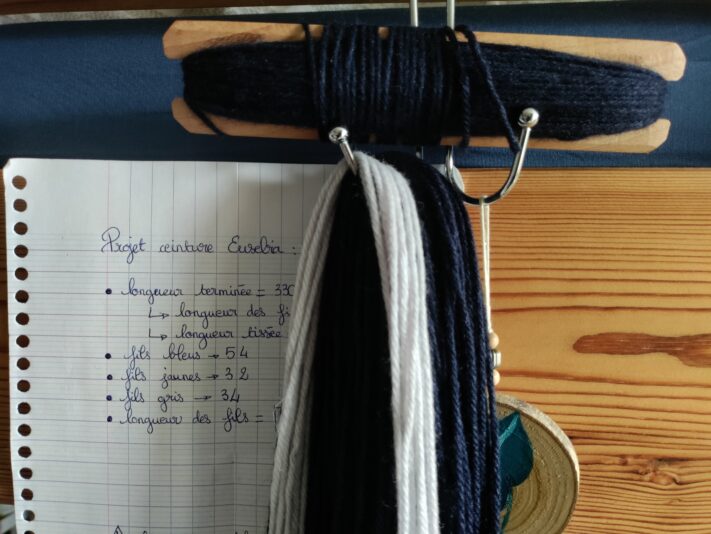 Projet ceinture Eusebia :
• longueur terminée = 330
↳ longueur des fi
↳ longueur tissée
• fils bleus → 54
• fils jaunes → 32
• fils gris → 34
• longueur des fils =